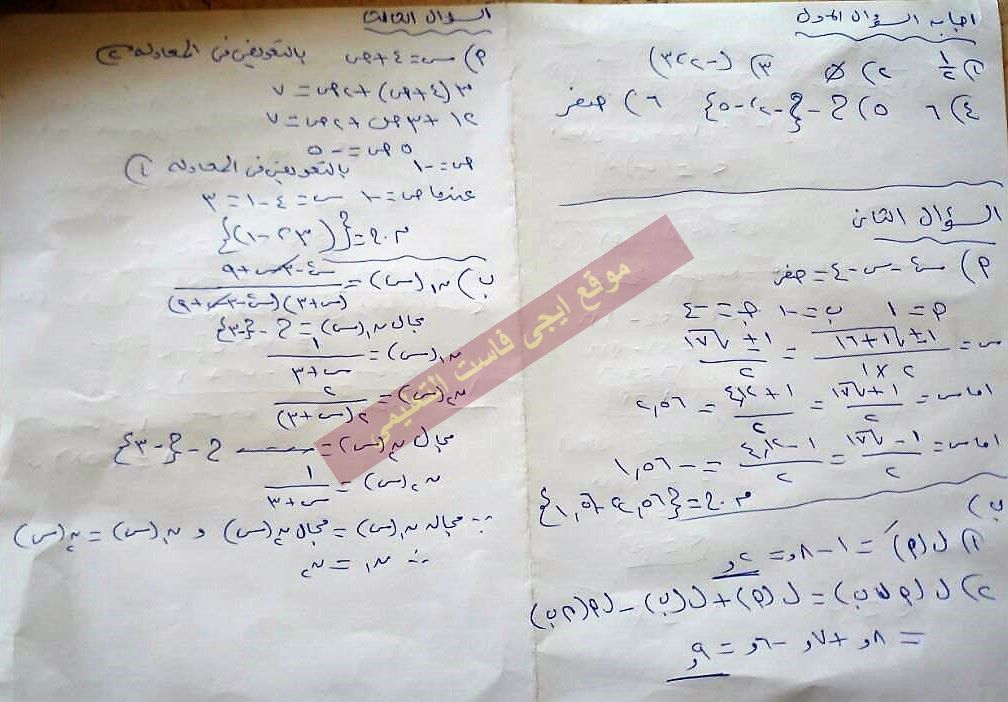 اجابه السؤال الاول
١) ١/٢ ٢) ∅ ٣) (٣،٢-)
٤) ٦ ٥) ح - {-٢، -٥} ٦) صفر
السؤال الثانى
م) س٢ - س - ٤ = صفر
م = ١ ب = -١ جـ = -٤
س = (١ ± √(١+١٦)) / (٢×١) = (١ ± √١٧) / ٢
اما س = (١ + √١٧) / ٢ = (١ + ٤,١٢) / ٢ = ٢,٥٦
اما س = (١ - √١٧) / ٢ = (١ - ٤,١٢) / ٢ = -١,٥٦
م.ح = {٢,٥٦، -١,٥٦}
ب)
١) ل(م)َ = ١ - ٨,= ٢,
٢) ل(م∪ب) = ل(م) + ل(ب) - ل(م∩ب)
= ٨, + ٧, - ٦, = ٩,
السؤال الثالث
م) س = ٤ + ص بالتعويض فى المعادله ٢
٣(٤+ص) + ٢ص = ٧
١٢ + ٣ص + ٢ص = ٧
٥ص = -٥
ص = -١ بالتعويض فى المعادله ١
عندما ص = -١ س = ٤ - ١ = ٣
م.ح = {(٣، -١)}
ب) ن١(س) = (س٢ - ٣س + ٩) / ((س+٣)(س٢ - ٣س + ٩))
مجال ن١(س) = ح - {-٣}
ن١(س) = ١ / (س+٣)
ن٢(س) = ٢ / (٢(س+٣))
مجال ن٢(س) = ح - {-٣}
ن٢(س) = ١ / (س+٣)
∵ مجال ن١(س) = مجال ن٢(س) و ن١(س) = ن٢(س)
∴ ن١ = ن٢
موقع ايجى فاست التعليمى